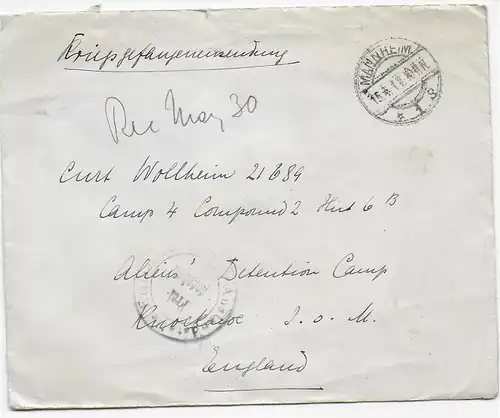 Kriegsgefangenensendung
MANNHEIM
Rec May 30
Curt Wollheim 21689
Camp 4 Compound 2 Hut 6 B
Aliens' Detention Camp
Knockaloe I. o. M.
England